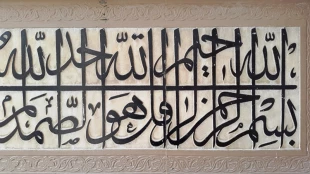 بسم الله الرحمن الرحيم قل هو الله احد الله الصمد